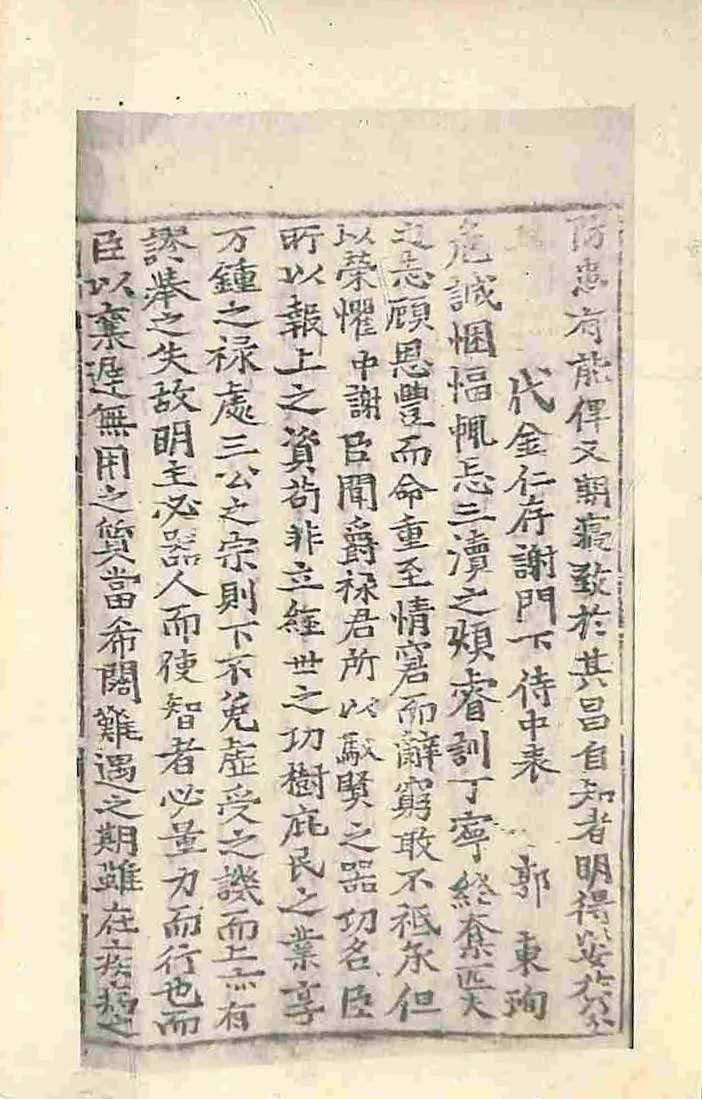 防患有能俾乂期寢致於其昌自知者明得以安於
代金仁存謝門下侍中表 郭東珣
危誠悃愊輒忘三瀆之煩睿訓丁寧終奪匹夫
之志顧恩豊而命重至情窘而辭窮敢不祗承但
以榮懼中謝臣聞爵禄君所以馭賢之器功名臣
所以報上之資苟非立經世之功樹庇民之業享
万鍾之禄處三公之宗則下不免虛受之譏而上亦有
謬擧之失故明主必器人而使智者必量力而行也而
臣以棄遲無用之質當希闊難遇之期雖在疾